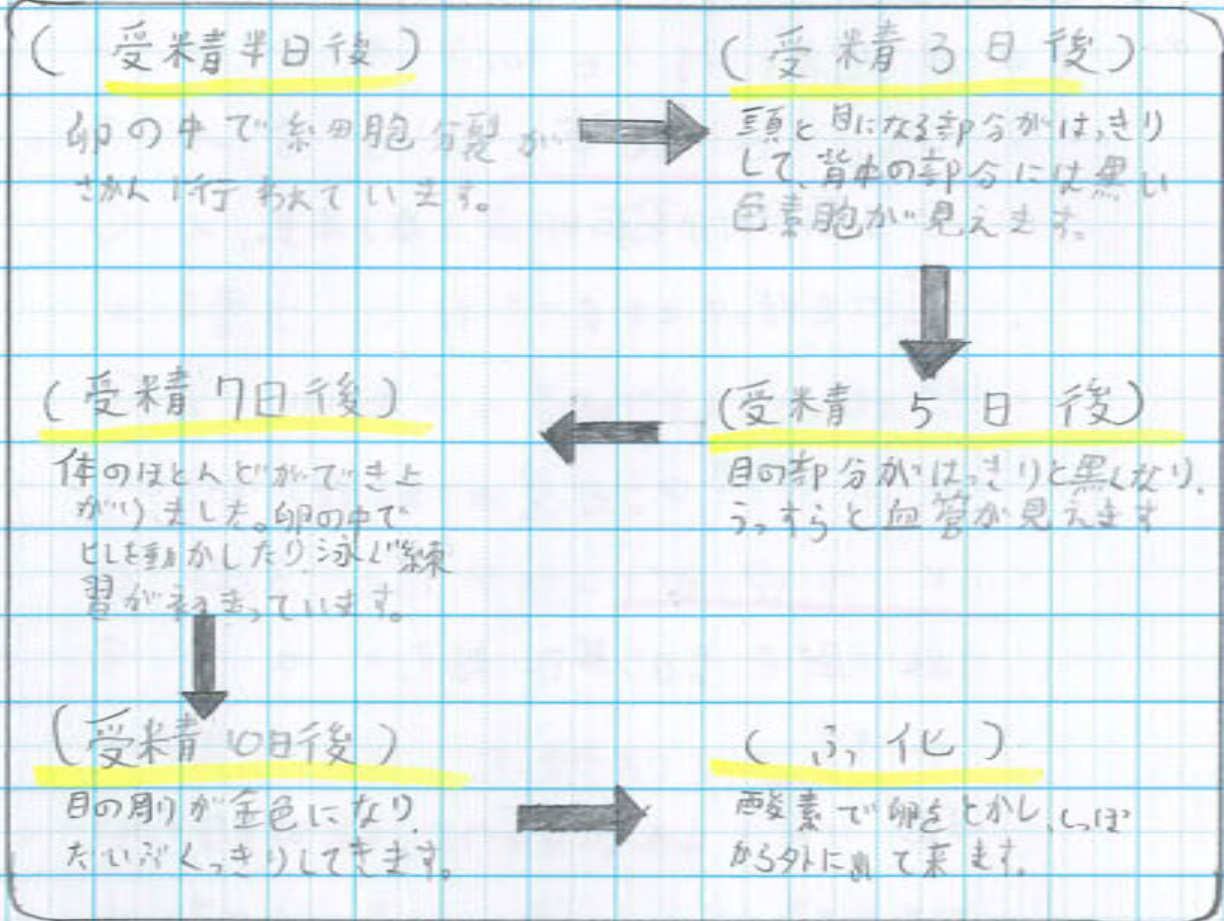 (受精半日後)
卵の中で細胞分裂が
さかんに行われています。
(受精3日後)
頭と目になる部分がはっきり
して、背中の部分には黒い
色素胞が見えます。
(受精5日後)
目の部分がはっきりと黒くなり、
うっすらと血管が見えます
(受精7日後)
体のほとんどができ上
がりました。卵の中で
ヒレを動かしたり、泳ぐ練
習が始まっています。
(受精10日後)
目の周りが金色になり、
だいぶくっきりしてきます。
(ふ化)
酸素で卵をとかし、しっぽ
から外に出て来ます。